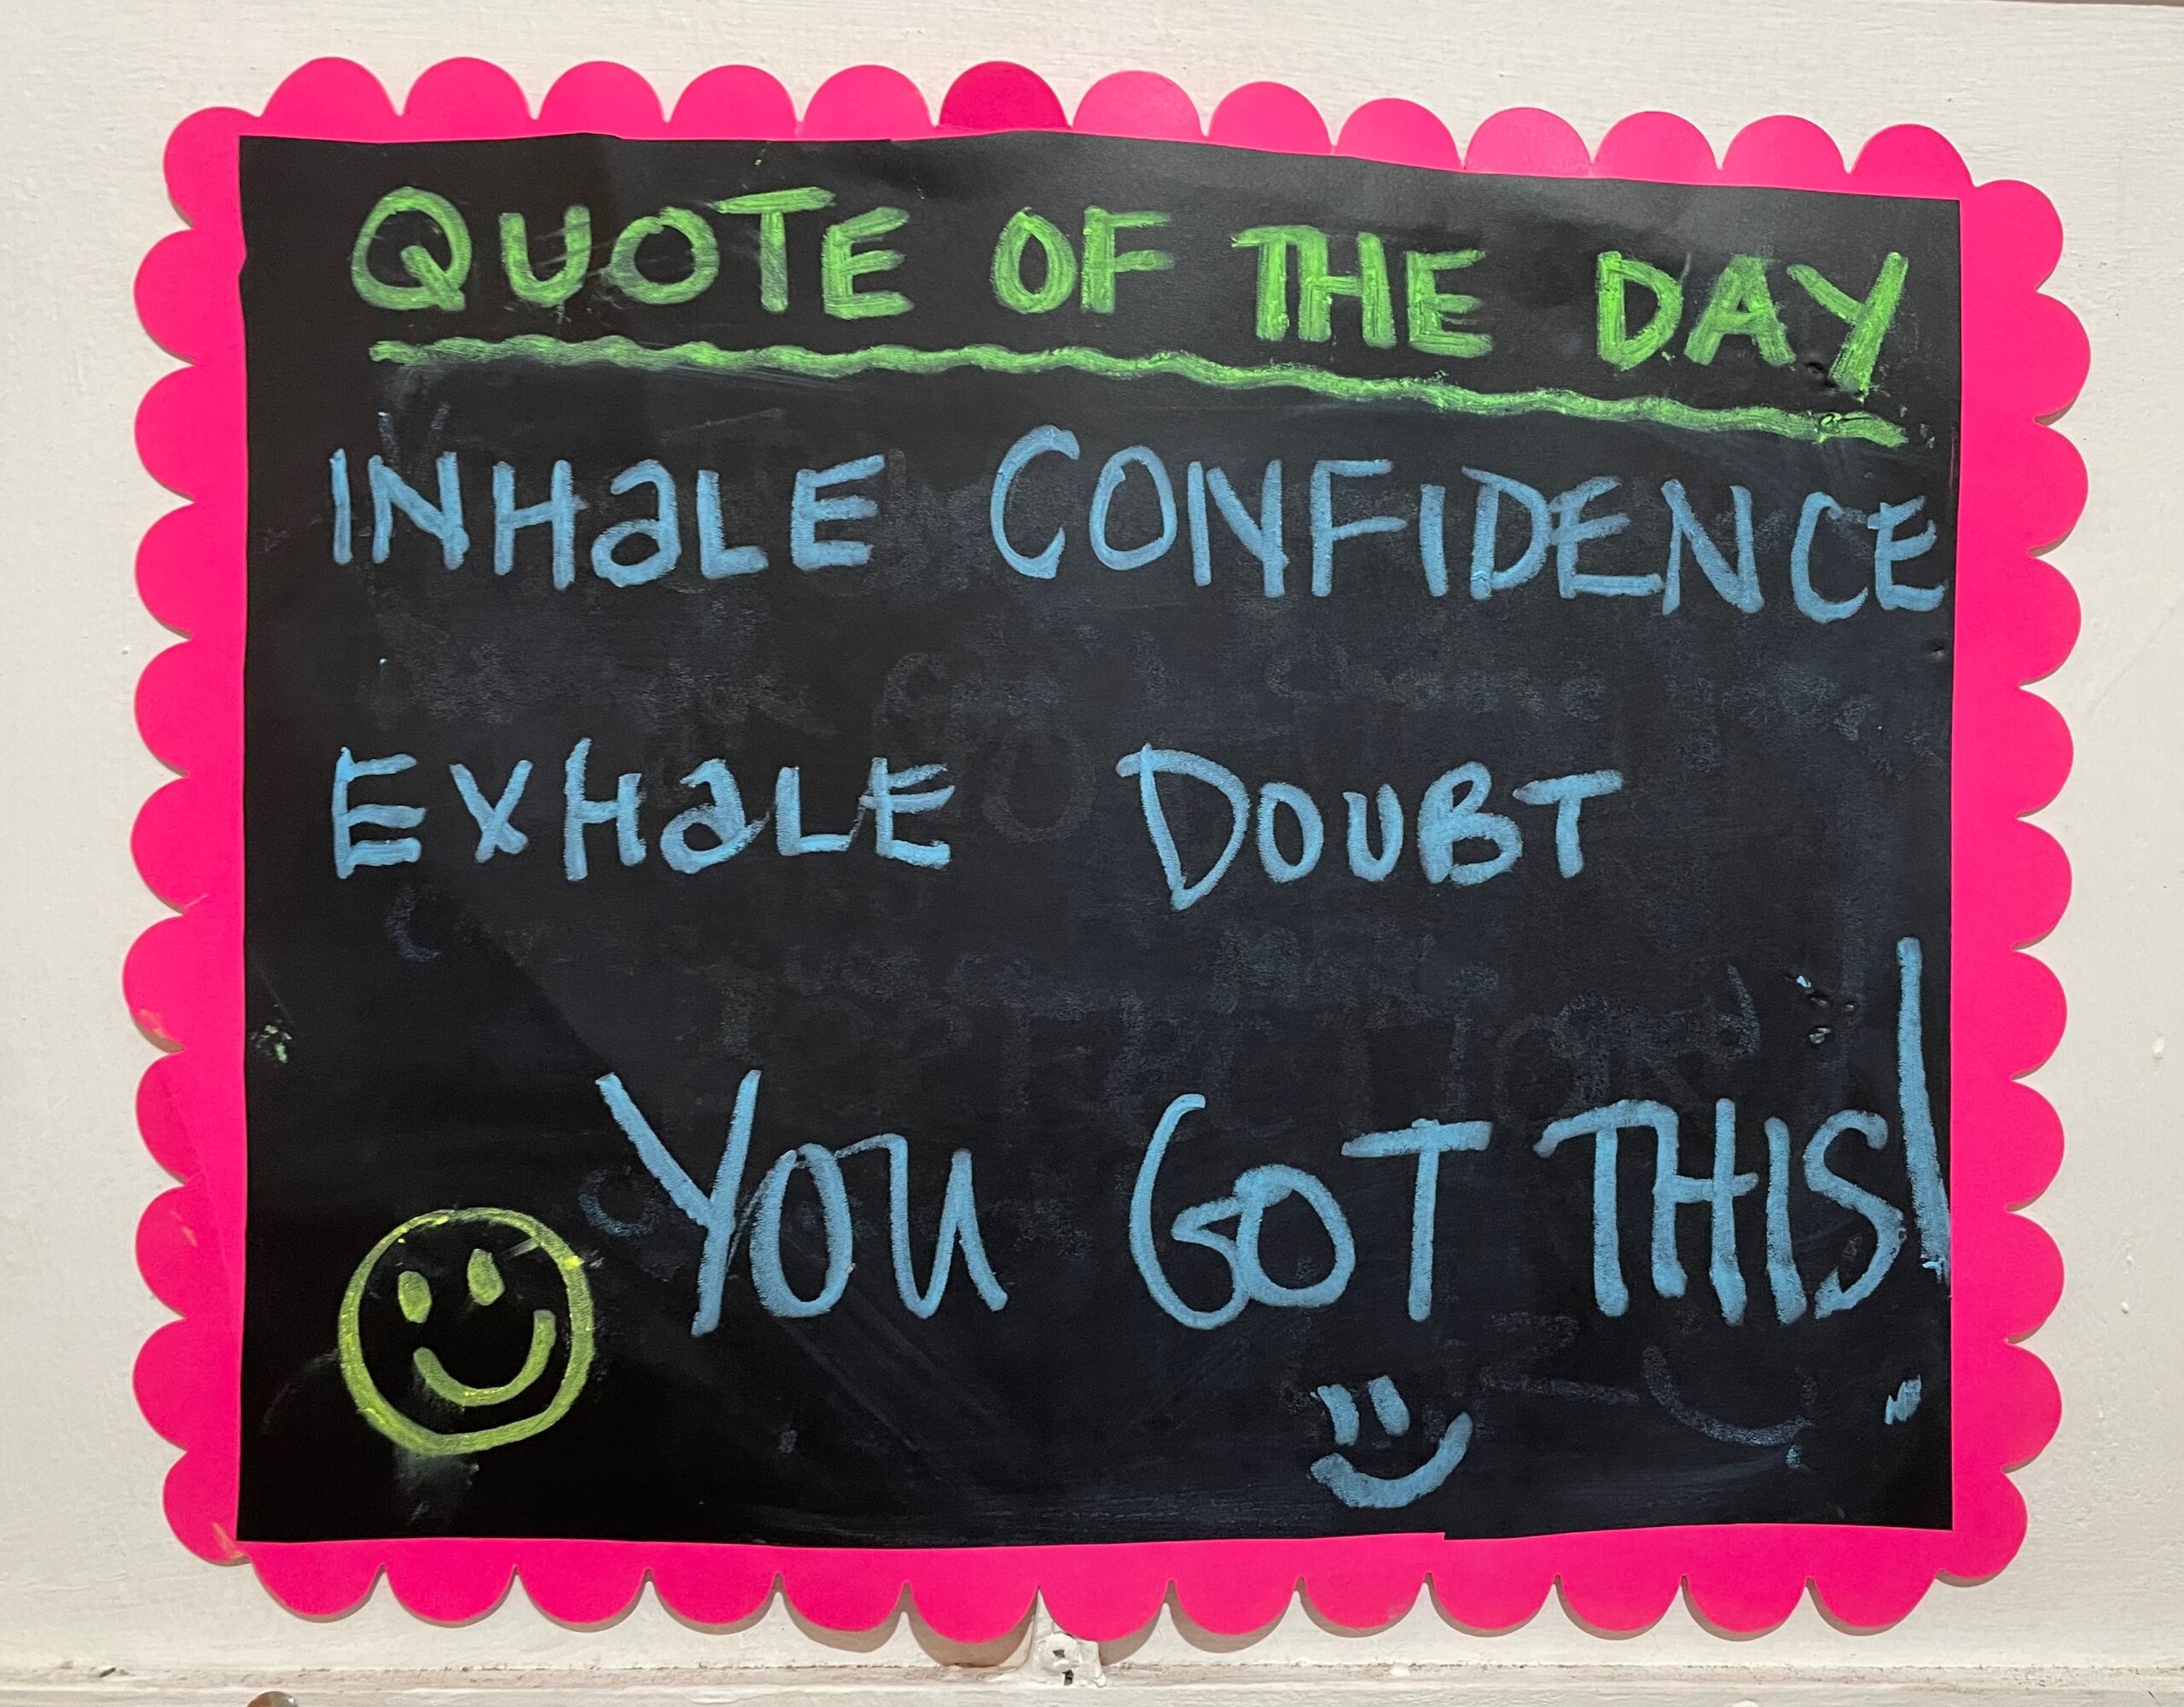 QUOTE OF THE DAY
INHaLE CONFIDENCE
EXHaLE DOUBT
YOU GOT THIS!